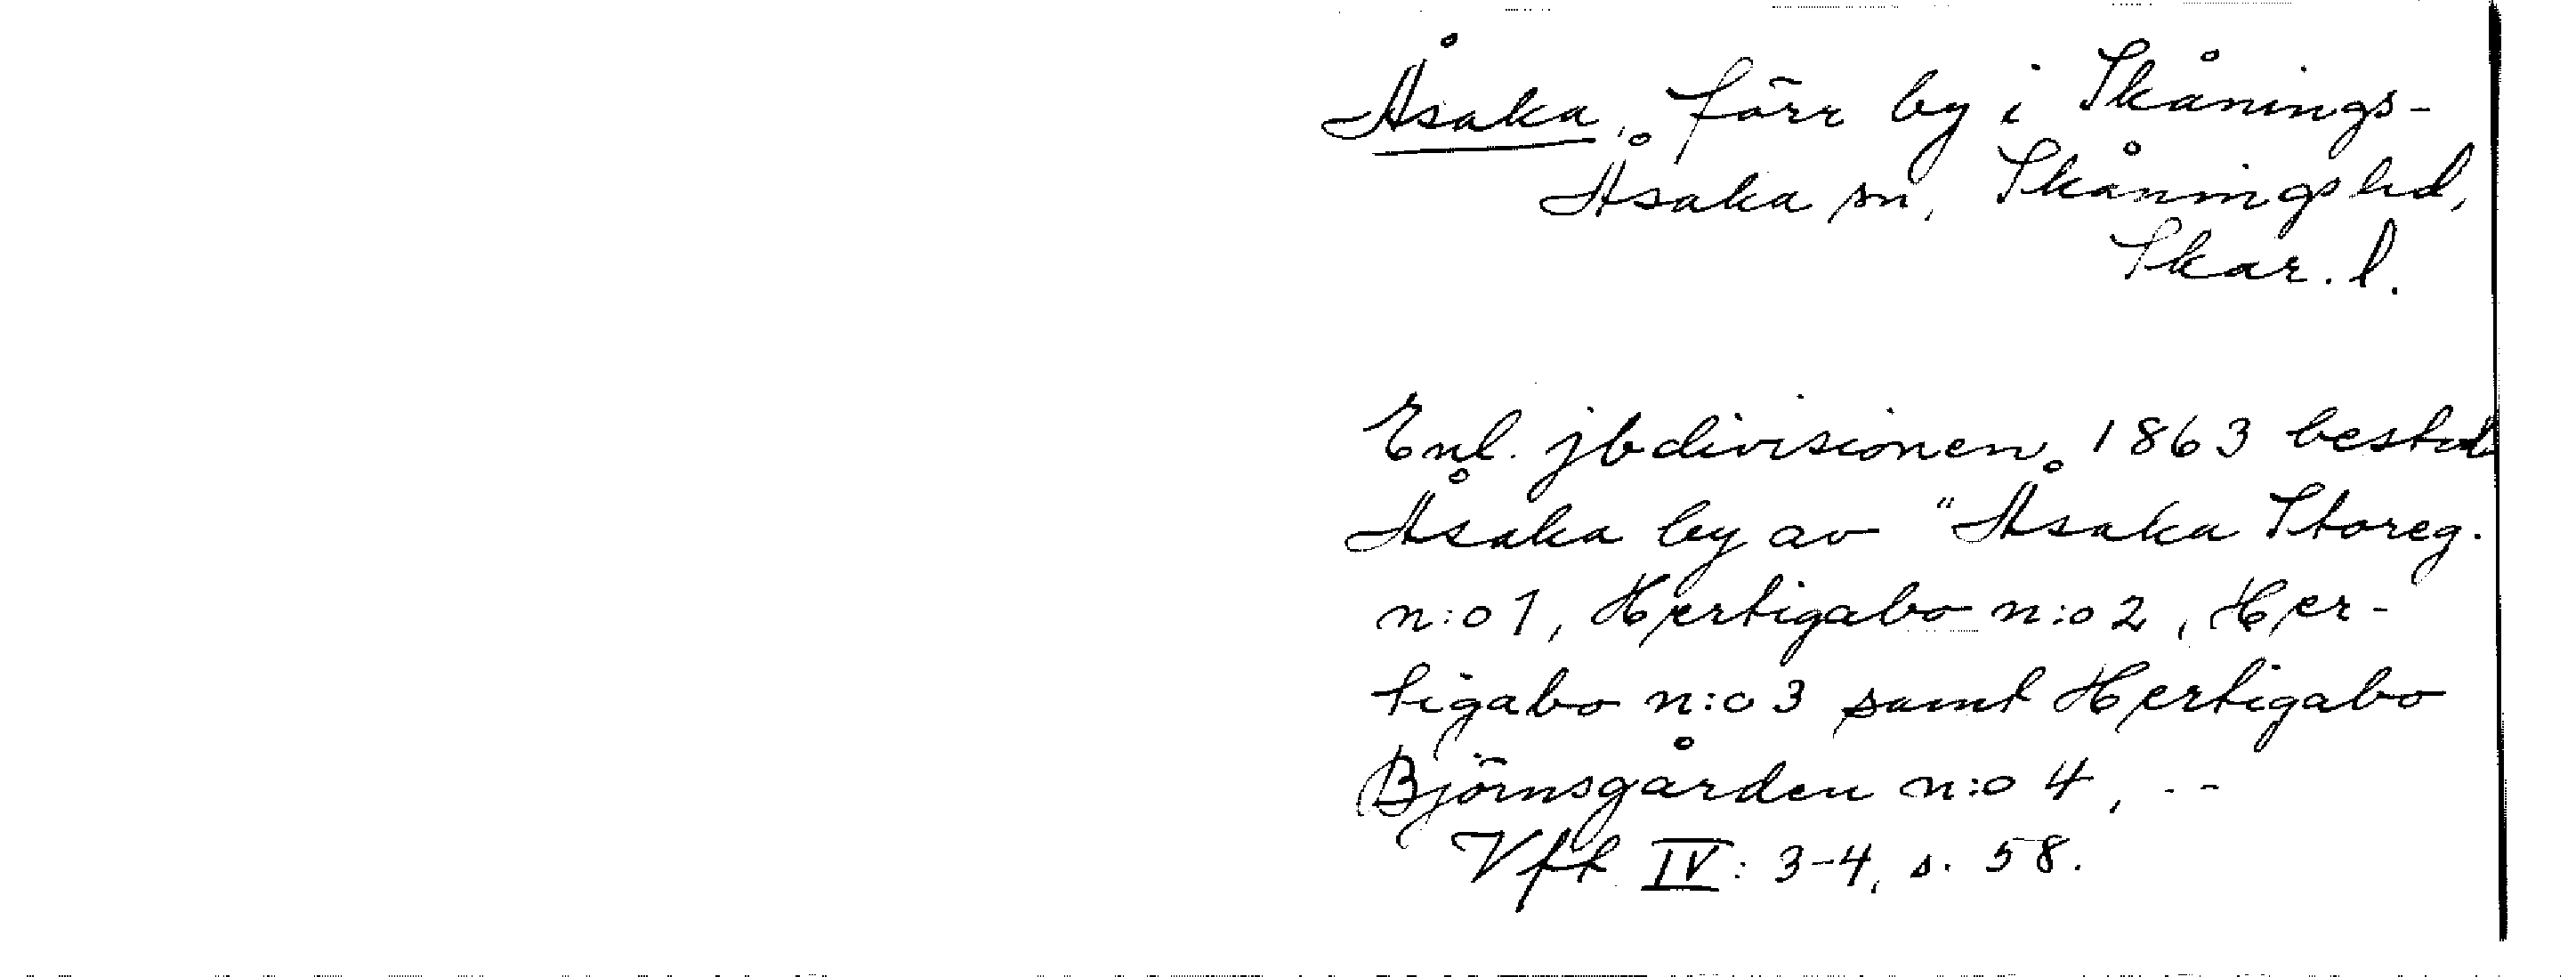 Åsaka, förr by i Skånings-
Åsaka sn, Skåningshd,
Skar. l.
Enl. jbdivisionen 1863 bestod
Åsaka by av "Åsaka Storeg.
n:o 1, Hertigabo n:o 2, Her-
tigabo n:o 3 samt Hertigabo
Björnsgården n:o 4, --
Vft IV: 3-4, s. 58.